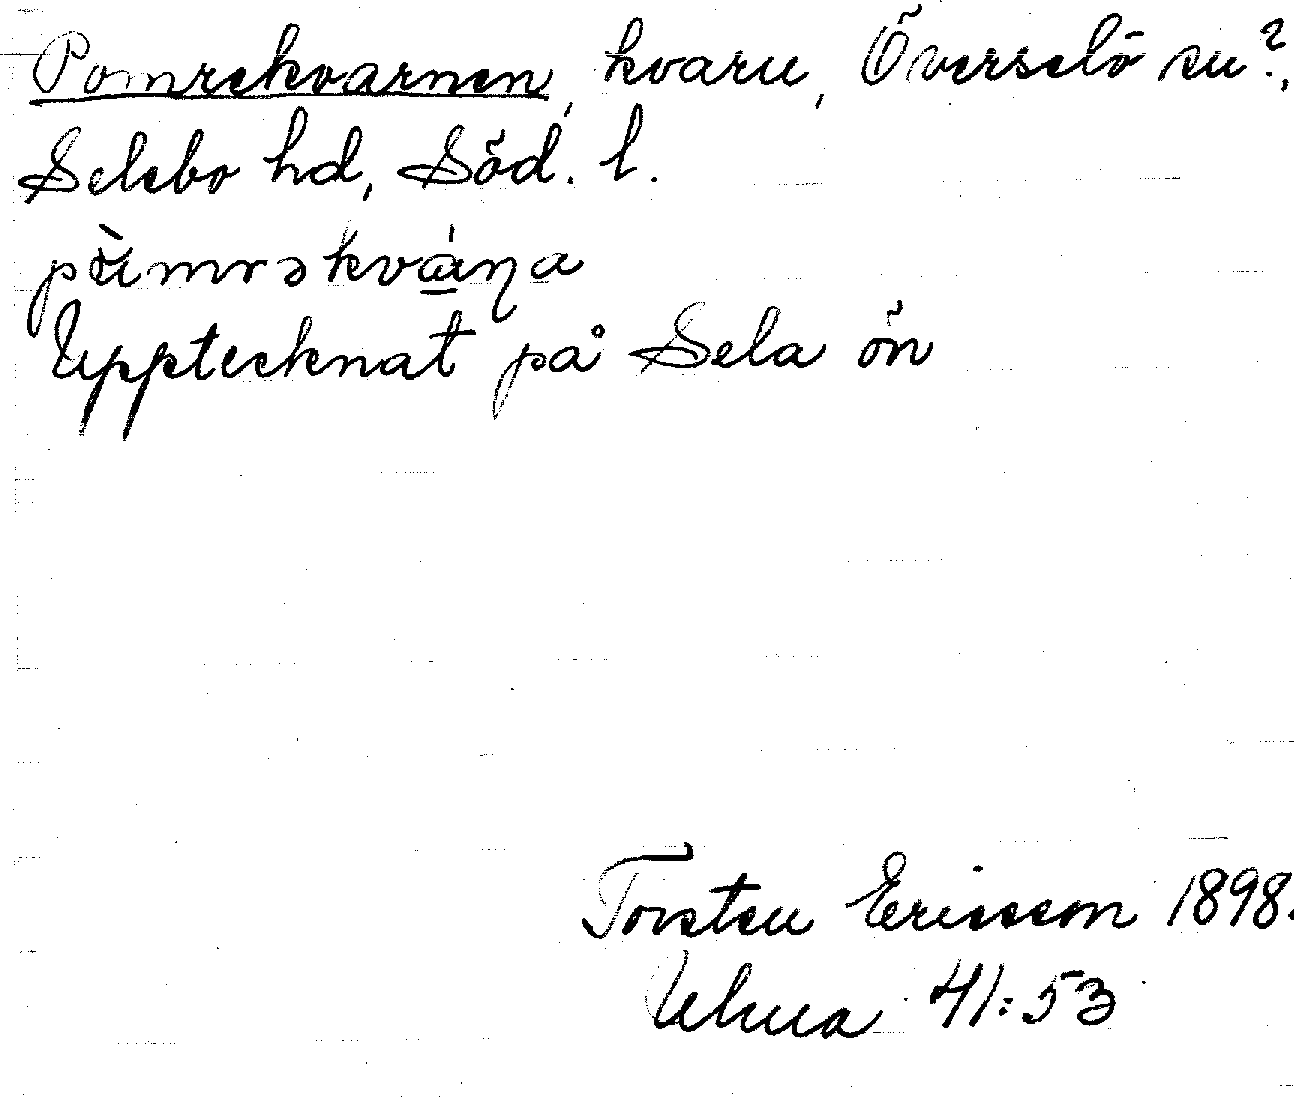 Pomrekvarnen, kvarn, Överselö sn?,
Selebo hd, Söd. l.
pòmrəkvá̱ṇa
Upptecknat på Sela ön
Torsten Ericsson 1898.
Ulma 41:53